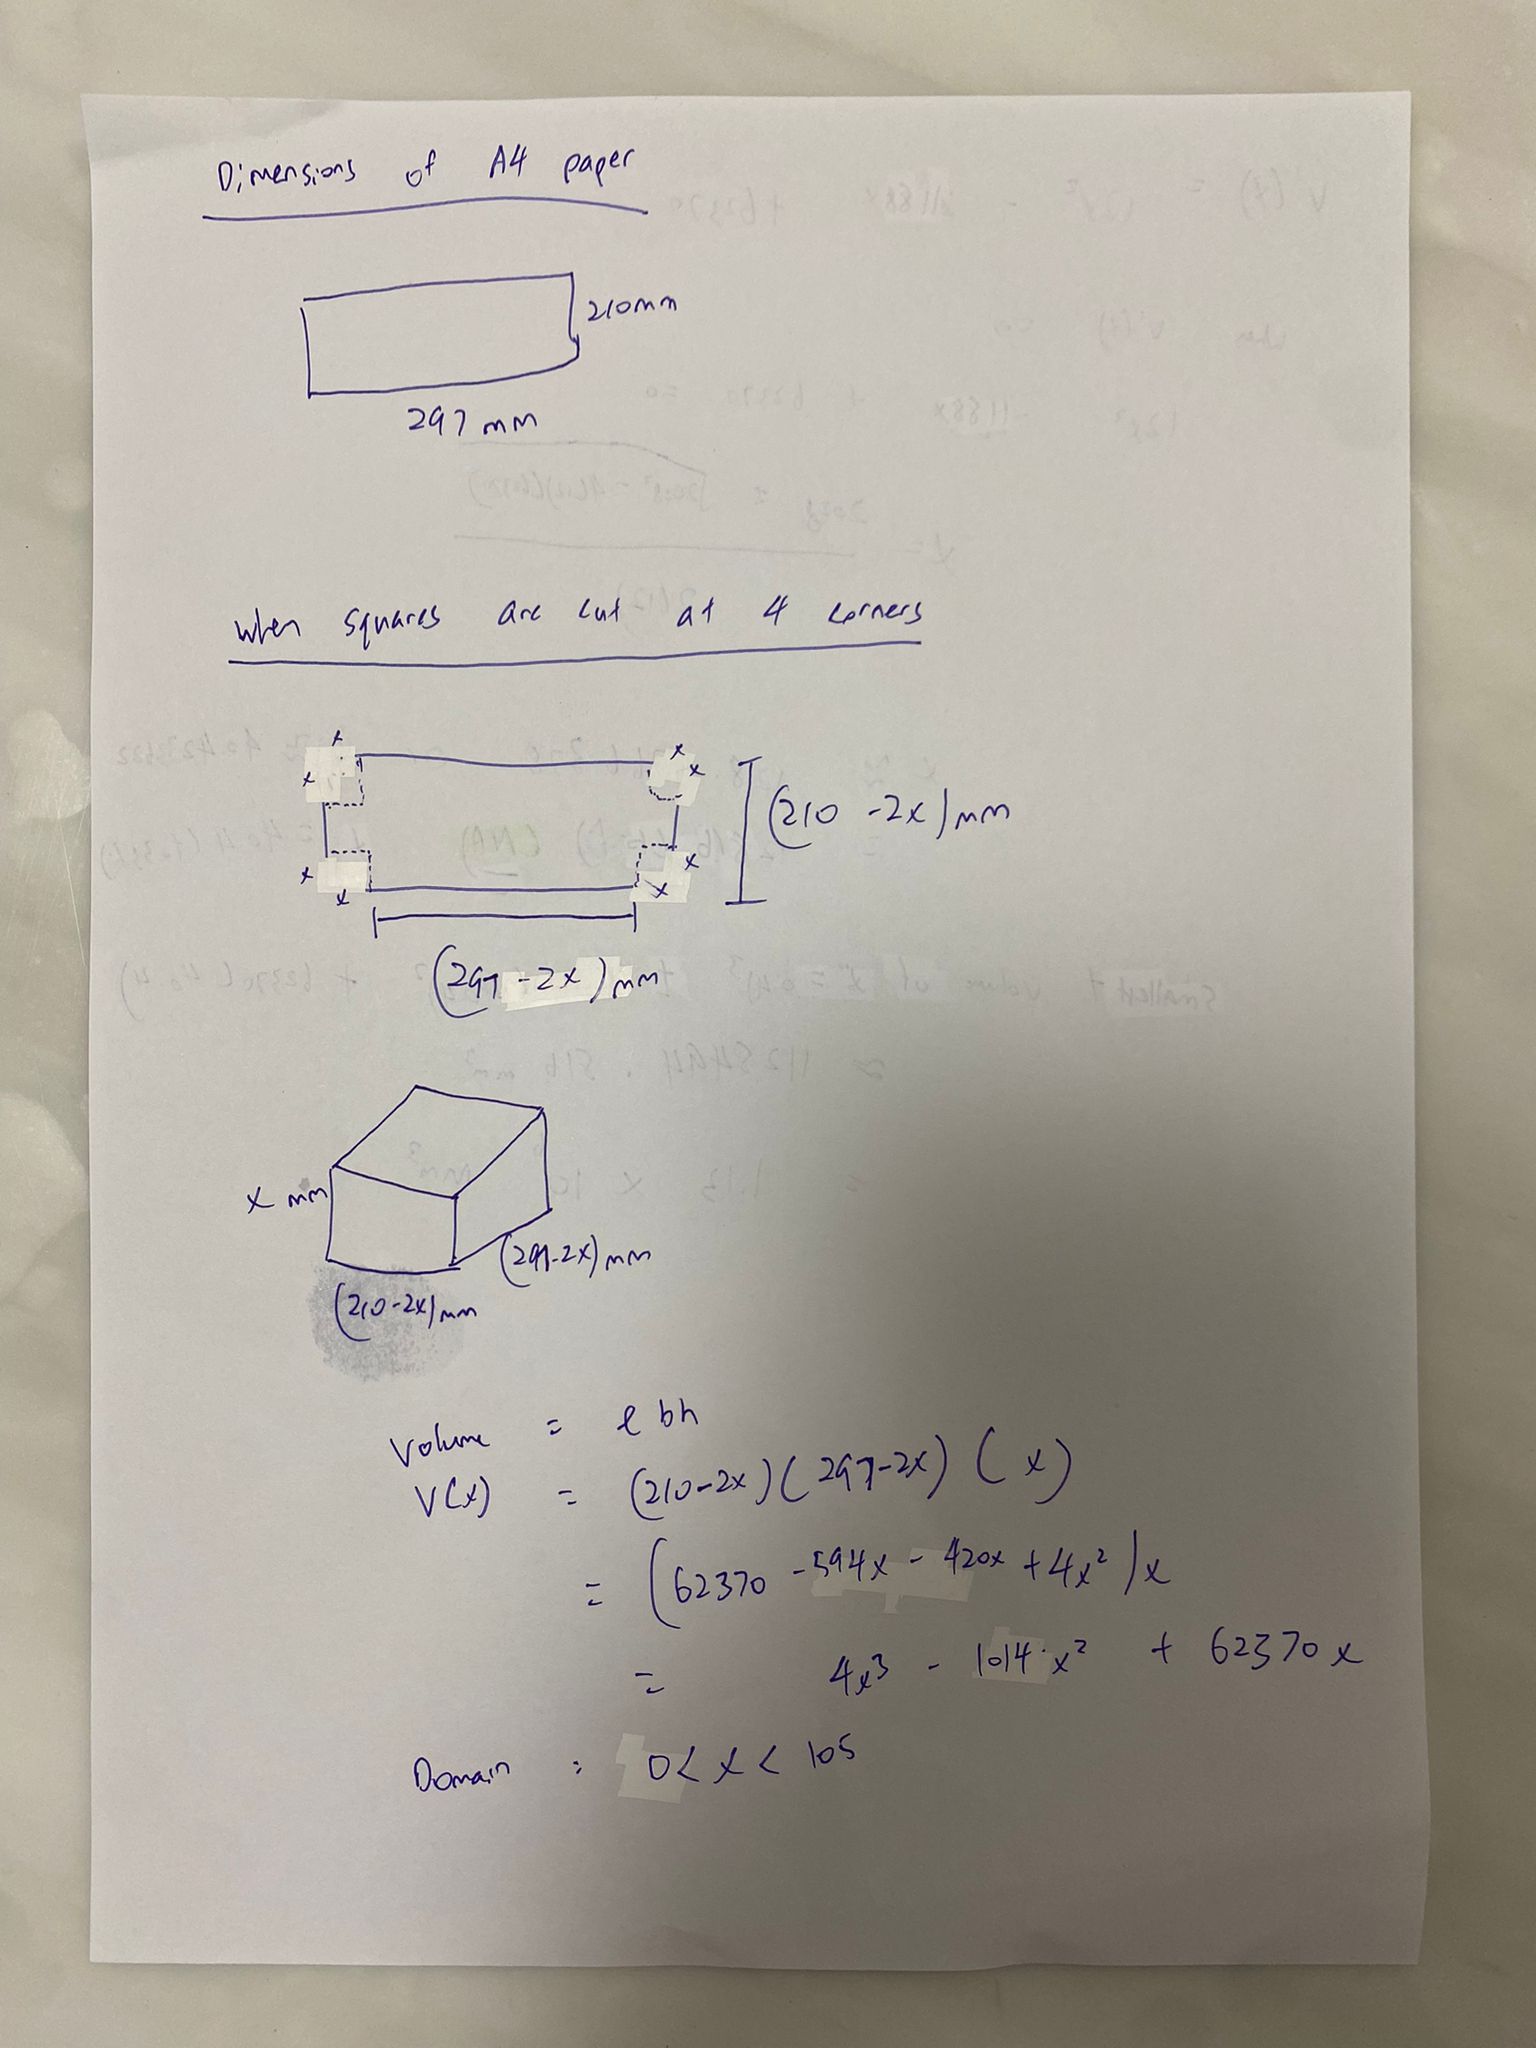 Dimensions of A4 paper
210mm
297 mm
When squares are cut at 4 corners
x
x
x
x
(210 -2x)mm
x
x
x
x
(297 -2x)mm
x mm
(297-2x)mm
(210-2x)mm
Volume = lbh
V(x) = (210-2x)(297-2x)(x)
= (62370 -594x - 420x +4x²)x
= 4x³ - 1014x² + 62370x
Domain : 0<x<105